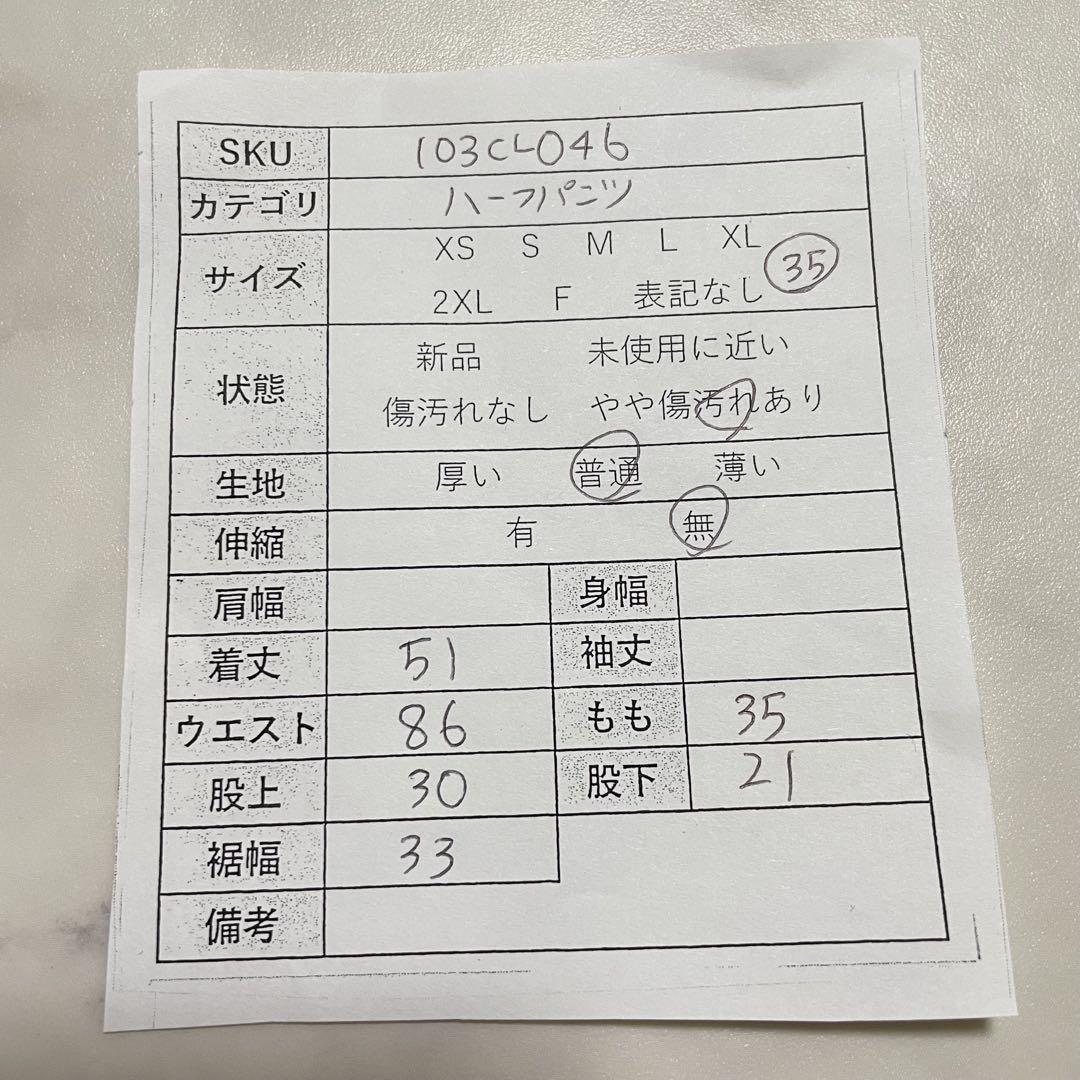 SKU 103CL046
カテゴリ ハーフパンツ
サイズ XS S M L XL 35
2XL F 表記なし
状態 新品 未使用に近い
傷汚れなし やや傷汚れあり
生地 厚い 普通 薄い
伸縮 有 無
肩幅 身幅
着丈 51 袖丈
ウエスト 86 もも 35
股上 30 股下 21
裾幅 33
備考